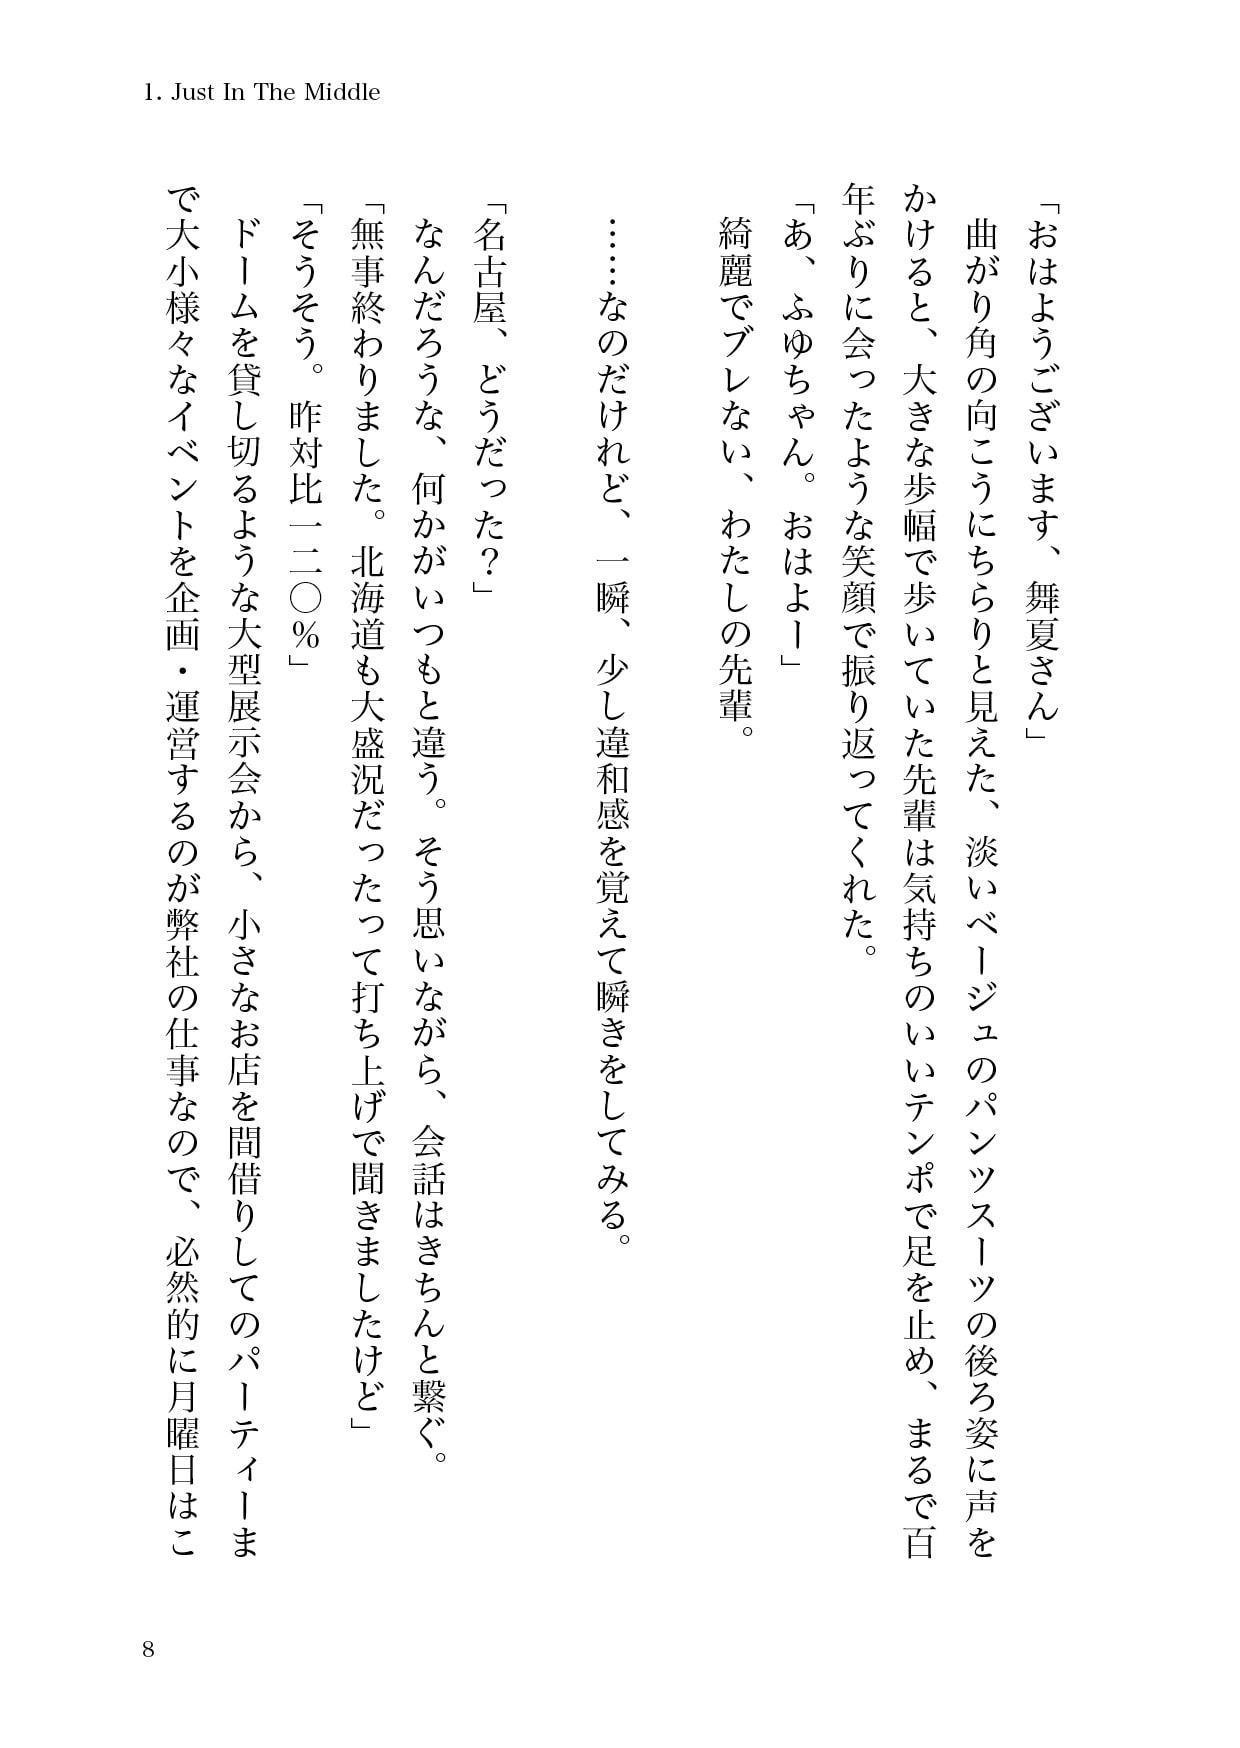 1. Just In The Middle
「おはようございます、舞夏さん」
　曲がり角の向こうにちらりと見えた、淡いベージュのパンツスーツの後ろ姿に声を
かけると、大きな歩幅で歩いていた先輩は気持ちのいいテンポで足を止め、まるで百
年ぶりに会ったような笑顔で振り返ってくれた。
「あ、ふゆちゃん。おはよー」
　綺麗でブレない、わたしの先輩。
　……なのだけれど、一瞬、少し違和感を覚えて瞬きをしてみる。
「名古屋、どうだった？」
　なんだろうな、何かがいつもと違う。そう思いながら、会話はきちんと繋ぐ。
「無事終わりました。北海道も大盛況だったって打ち上げで聞きましたけど」
「そうそう。昨対比一二〇％」
　ドームを貸し切るような大型展示会から、小さなお店を間借りしてのパーティーま
で大小様々なイベントを企画・運営するのが弊社の仕事なので、必然的に月曜日はこ
8